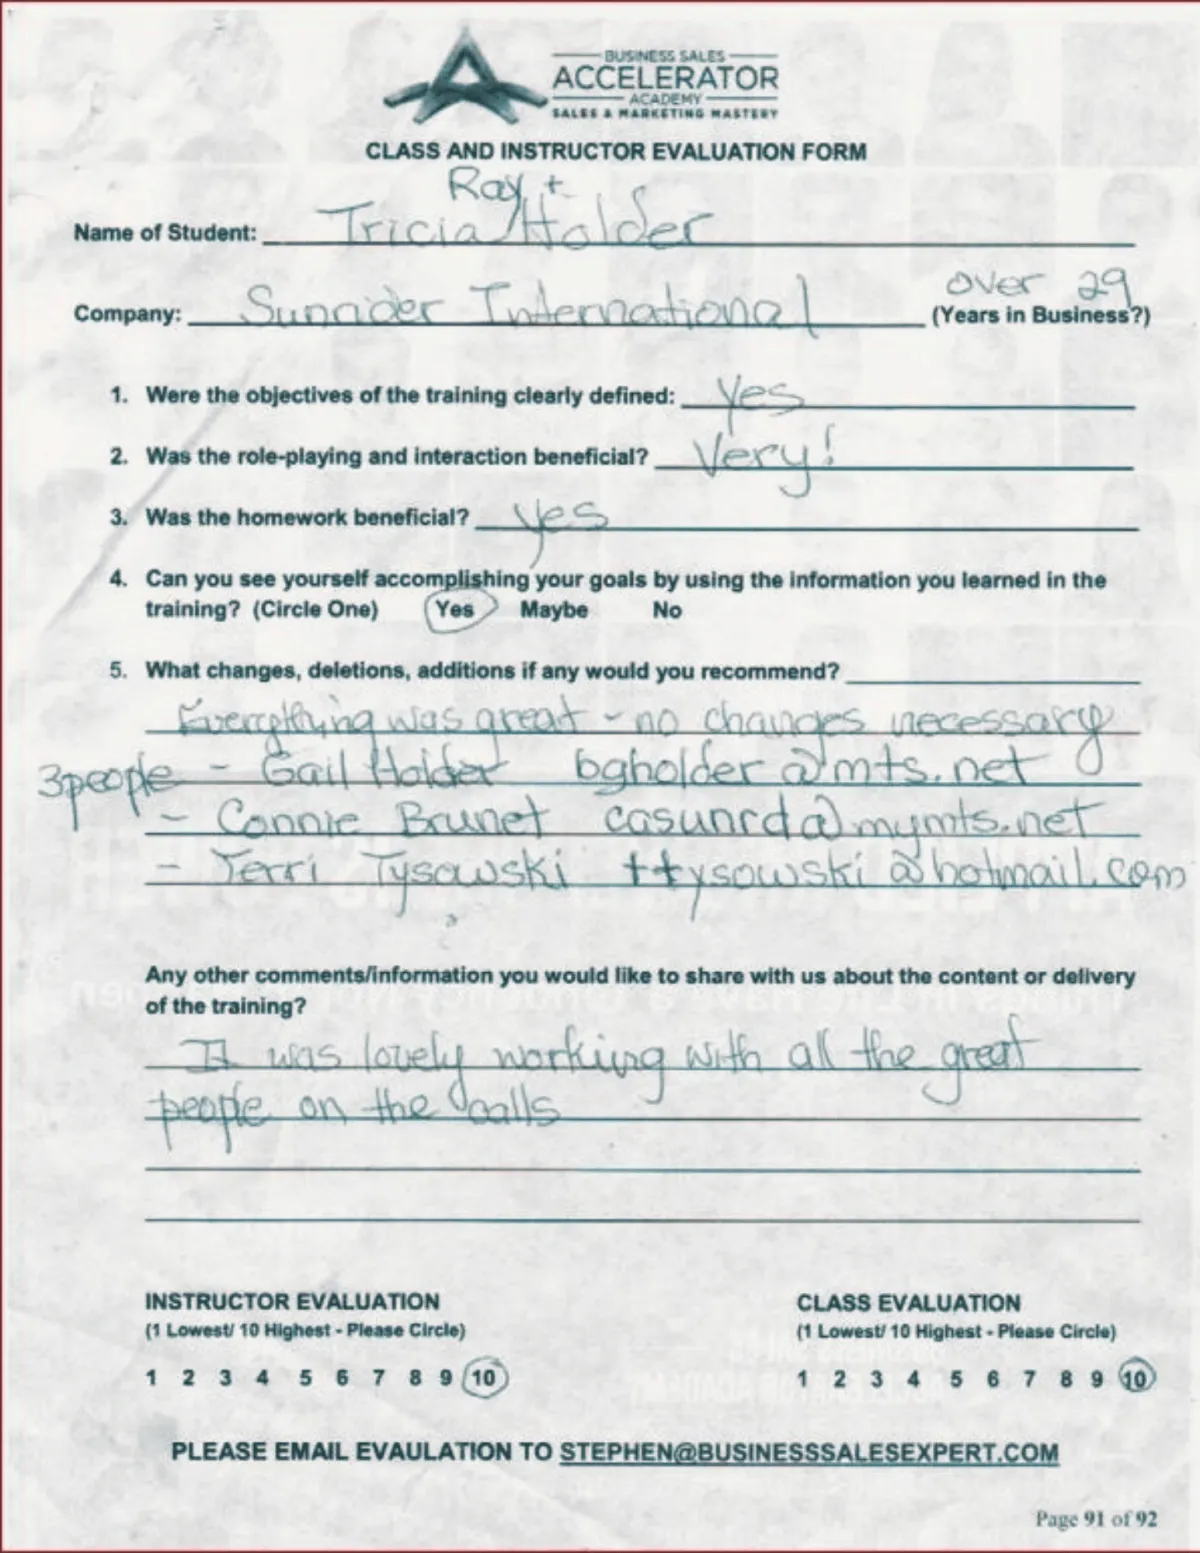 BUSINESS SALES
ACCELERATOR
ACADEMY
SALES & MARKETING MASTERY
CLASS AND INSTRUCTOR EVALUATION FORM
Ray +
Name of Student: Tricia Holder
over 29
Company: Sunrider International (Years in Business?)
1. Were the objectives of the training clearly defined: Yes
2. Was the role-playing and interaction beneficial? Very!
3. Was the homework beneficial? Yes
4. Can you see yourself accomplishing your goals by using the information you learned in the
training? (Circle One) Yes Maybe No
5. What changes, deletions, additions if any would you recommend?
Everything was great - no changes necessary
3people - Gail Holder bgholder@mts.net
- Connie Brunet casunrd@mymts.net
- Terri Tysowski ttysowski@hotmail.com
Any other comments/information you would like to share with us about the content or delivery
of the training?
It was lovely working with all the great
people on the calls
INSTRUCTOR EVALUATION CLASS EVALUATION
(1 Lowest/ 10 Highest - Please Circle) (1 Lowest/ 10 Highest - Please Circle)
1 2 3 4 5 6 7 8 9 10 1 2 3 4 5 6 7 8 9 10
PLEASE EMAIL EVAULATION TO STEPHEN@BUSINESSSALESEXPERT.COM
Page 91 of 92